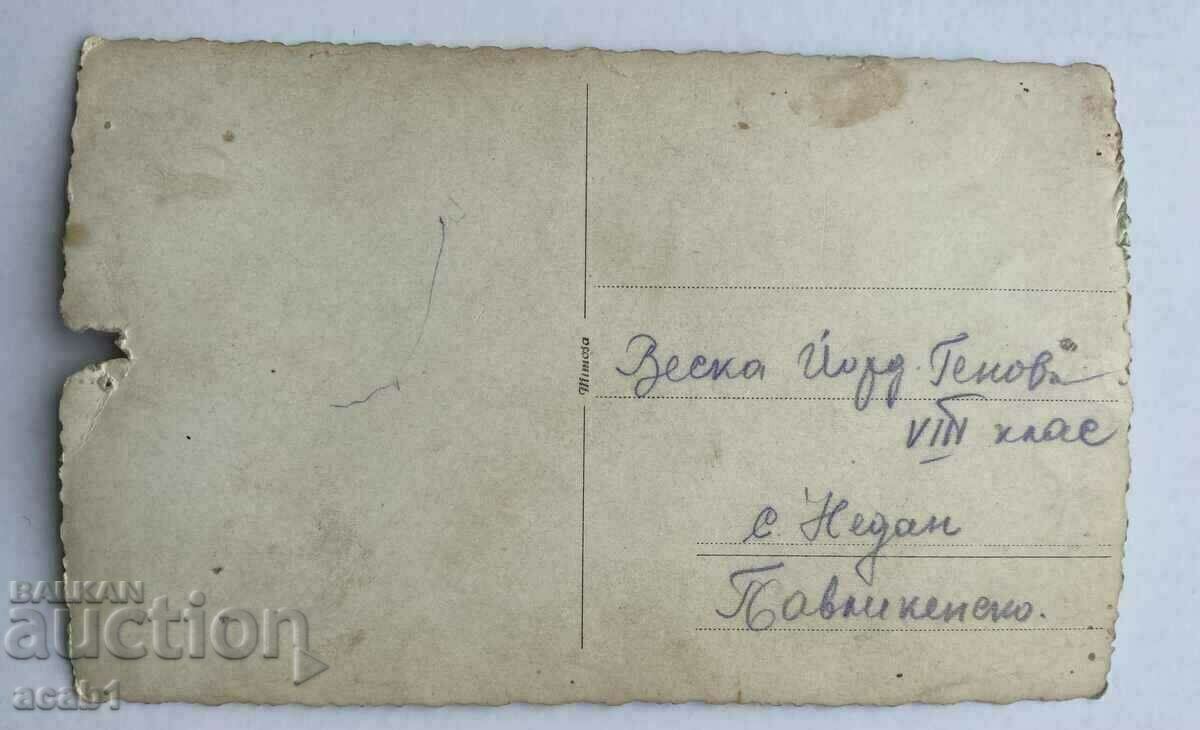 Mimosa
Веска Йорд. Генова
VIII клас
с. Недан
Павликенско.
BALKAN
auction
acab1